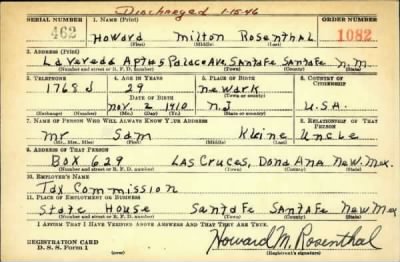 Discharged 1-15-46
SERIAL NUMBER 1. NAME (Print) ORDER NUMBER
462 Howard Milton Rosenthal 1082
(First) (Middle) (Last)
2. ADDRESS (Print)
La Vereda Apts Palace Ave, Santa Fe Santa Fe N.M.
(Number and street or R. F. D. number) (Town) (County) (State)
3. TELEPHONE 4. AGE IN YEARS 5. PLACE OF BIRTH 6. COUNTRY OF CITIZENSHIP
1768 J 29 Newark
DATE OF BIRTH (Town or county)
Nov. 2 1910 N.J. U.S.A.
(Mo.) (Day) (Yr.) (State or country)
7. NAME OF PERSON WHO WILL ALWAYS KNOW YOUR ADDRESS 8. RELATIONSHIP OF THAT PERSON
Mr Sam Kleine Uncle
(Mr., Mrs., Miss) (First) (Middle) (Last)
9. ADDRESS OF THAT PERSON
Box 629 Las Cruces, Dona Ana New. Mex.
(Number and street or R. F. D. number) (Town) (County) (State)
10. EMPLOYER'S NAME
Tax Commission
11. PLACE OF EMPLOYMENT OR BUSINESS
State House Santa Fe Santa Fe New Mex
(Number and street or R. F. D. number) (Town) (County) (State)
I AFFIRM THAT I HAVE VERIFIED ABOVE ANSWERS AND THAT THEY ARE TRUE.
REGISTRATION CARD
D. S. S. Form 1 Howard M. Rosenthal
(Registrant's signature)